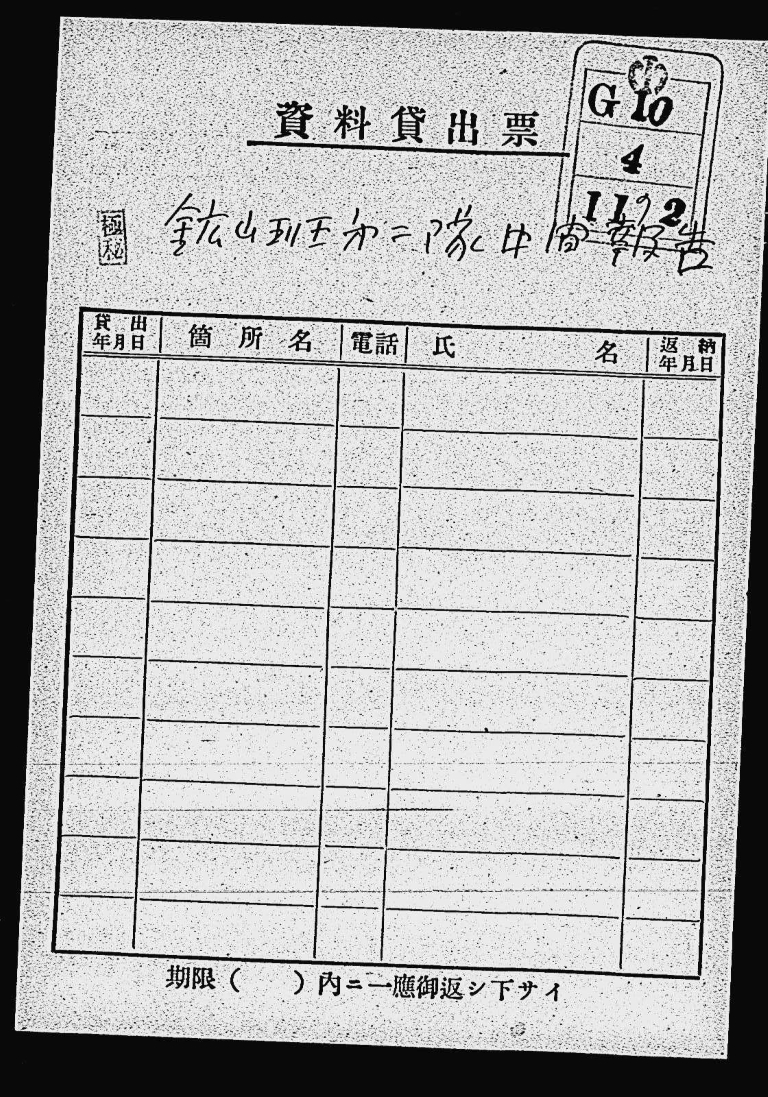 資料貸出票
G 10
4
11の2
極秘
鉱山班第二隊中間報告
貸出年月日 箇所名 電話 氏名 返納年月日
期限（　　）内ニ一應御返シ下サイ